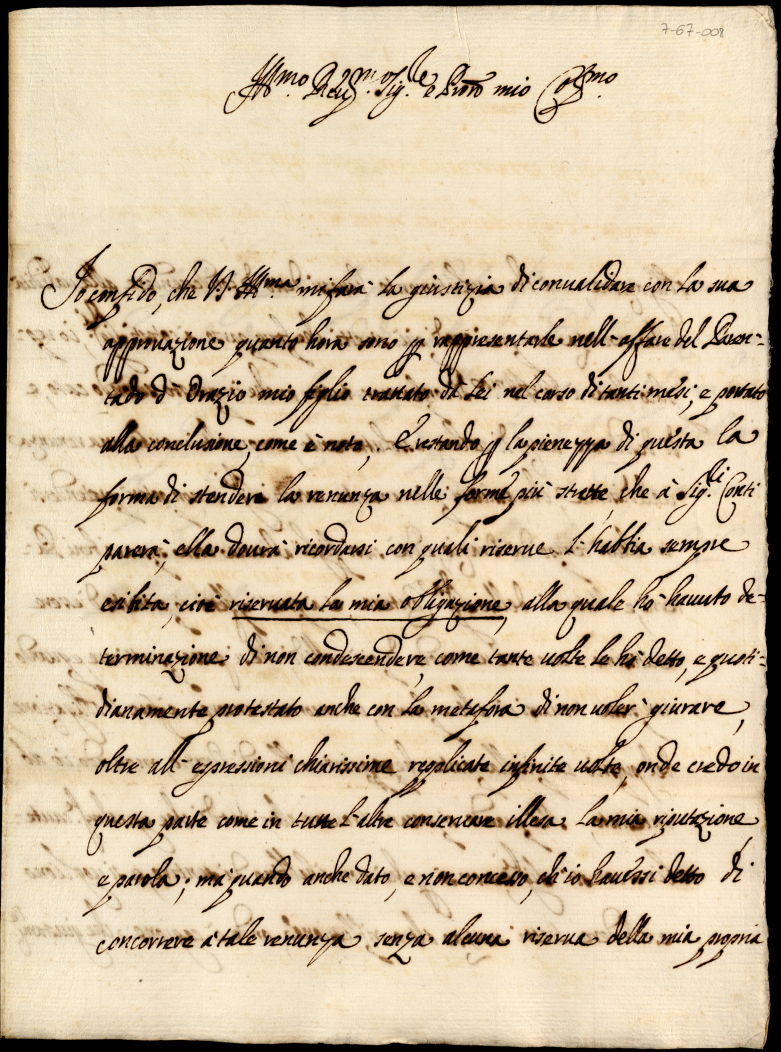 7-67-008
Ill.mo Reu.mo Sig.le e Prõn mio Col.mo
Io confido, che V.S. Ill.ma mi farà la giustizia di conualidare con la sua
approuazione quanto hora sono p rappresentarle nell'affare del Paren-
tado d'Orazio mio figlio trattato da Lei nel corso di tanti mesi, e portato
alla conclusione, come è noto, E restando p la pienezza di questa la
forma di stendere la renunza nelle forme più strette, che à Sig.li Conti
parerà, ella dourà ricordarsi con quali riserue l'habbia sempre
esibita, cioè riseruata la mia obligazione, alla quale ho hauuto de-
terminazione di non condescendere, come tante uolte le hò detto, e quoti-
dianamente protestato anche con la metafora di non uoler giurare,
oltre all'espressioni chiarissime replicate infinite uolte, onde credo in
questa parte come in tutte l'altre conseruare illesa la mia riputazione
e parola; mà quando anche dato, e non concesso, ch'io hauessi detto di
concorrere à tale renunza senza alcuna riserua della mia propria